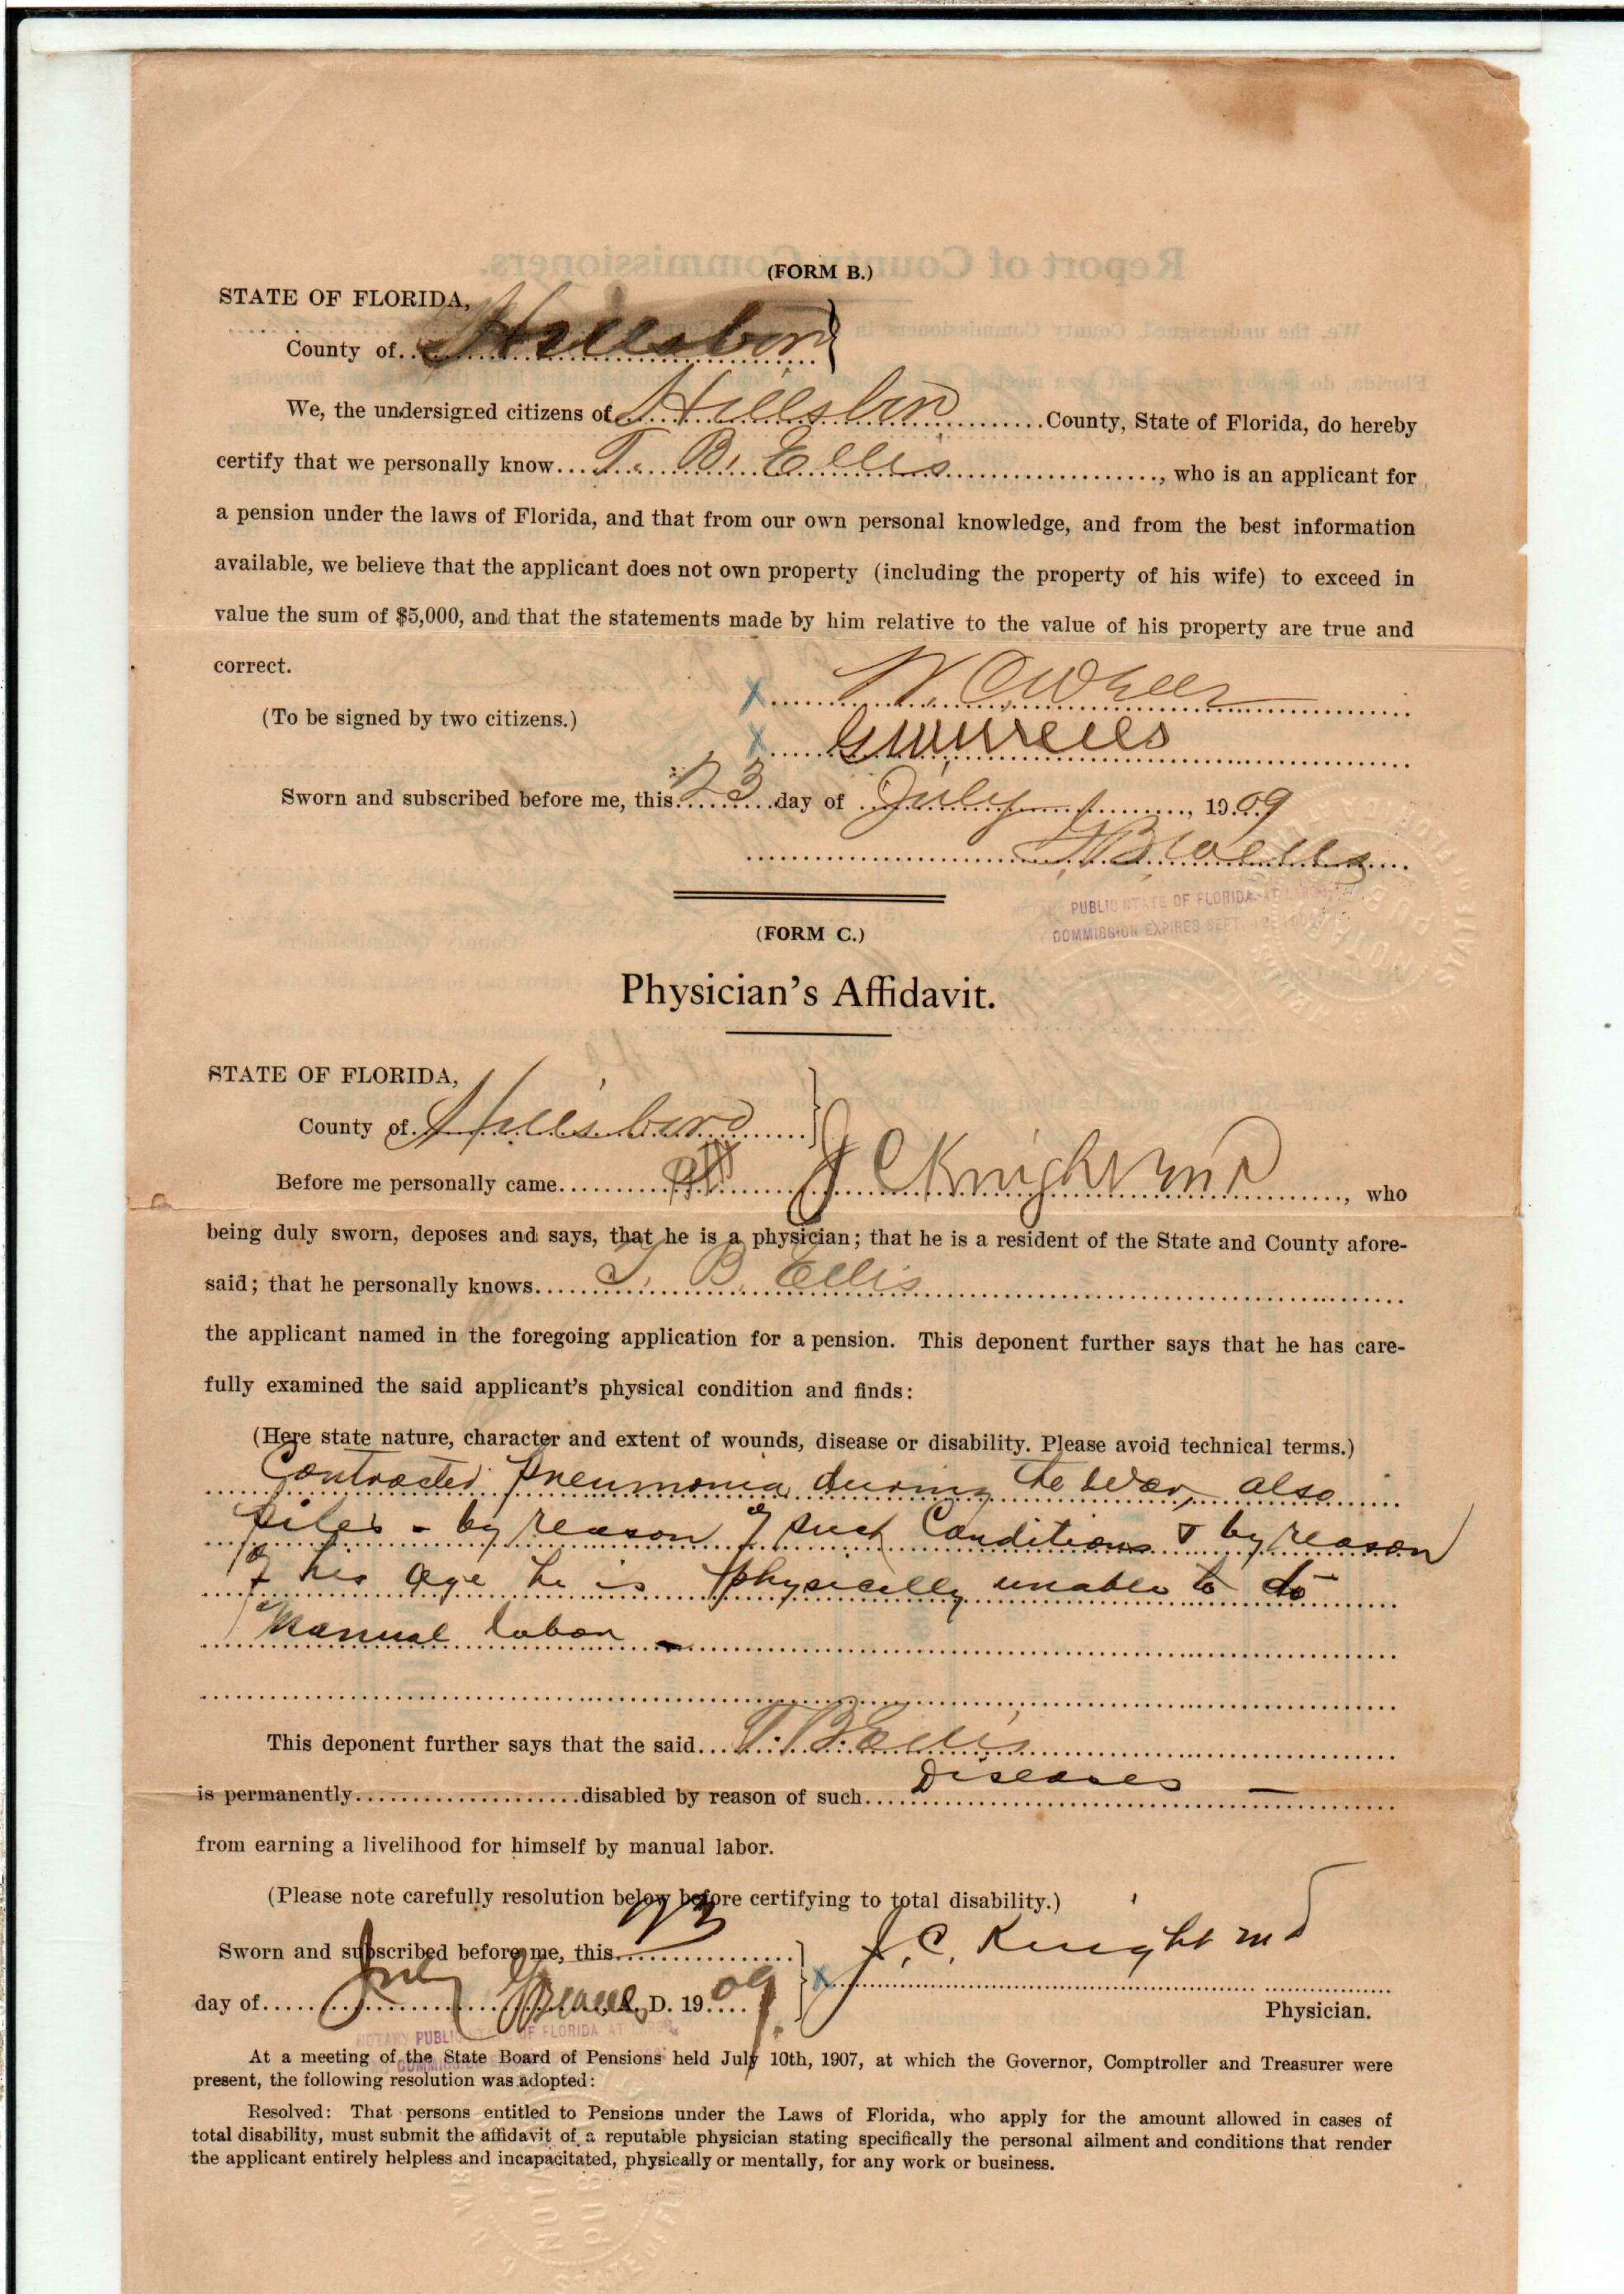 (FORM B.)
STATE OF FLORIDA,
County of Hillsboro
We, the undersigned citizens of Hillsboro County, State of Florida, do hereby
certify that we personally know T. B. Ellis, who is an applicant for
a pension under the laws of Florida, and that from our own personal knowledge, and from the best information
available, we believe that the applicant does not own property (including the property of his wife) to exceed in
value the sum of $5,000, and that the statements made by him relative to the value of his property are true and
correct.
X
(To be signed by two citizens.)
X
Sworn and subscribed before me, this 23 day of July, 1909
PUBLIC STATE OF FLORIDA AT
COMMISSION EXPIRES SEPT.
(FORM C.)
Physician's Affidavit.
STATE OF FLORIDA,
County of Hillsboro
Before me personally came J C Knight MD, who
being duly sworn, deposes and says, that he is a physician; that he is a resident of the State and County afore-
said; that he personally knows T. B. Ellis
the applicant named in the foregoing application for a pension. This deponent further says that he has care-
fully examined the said applicant's physical condition and finds:
(Here state nature, character and extent of wounds, disease or disability. Please avoid technical terms.)
Contracted Pneumonia during the War, also
piles - by reason of such Conditions & by reason
of his age he is physically unable to do
Manual labor
This deponent further says that the said T. B. Ellis
is permanently disabled by reason of such Diseases
from earning a livelihood for himself by manual labor.
(Please note carefully resolution below before certifying to total disability.)
Sworn and subscribed before me, this 23
J. C. Knight MD
day of July A. D. 1909
X
Physician.
NOTARY PUBLIC STATE OF FLORIDA AT LARGE
At a meeting of the State Board of Pensions held July 10th, 1907, at which the Governor, Comptroller and Treasurer were
present, the following resolution was adopted:
Resolved: That persons entitled to Pensions under the Laws of Florida, who apply for the amount allowed in cases of
total disability, must submit the affidavit of a reputable physician stating specifically the personal ailment and conditions that render
the applicant entirely helpless and incapacitated, physically or mentally, for any work or business.